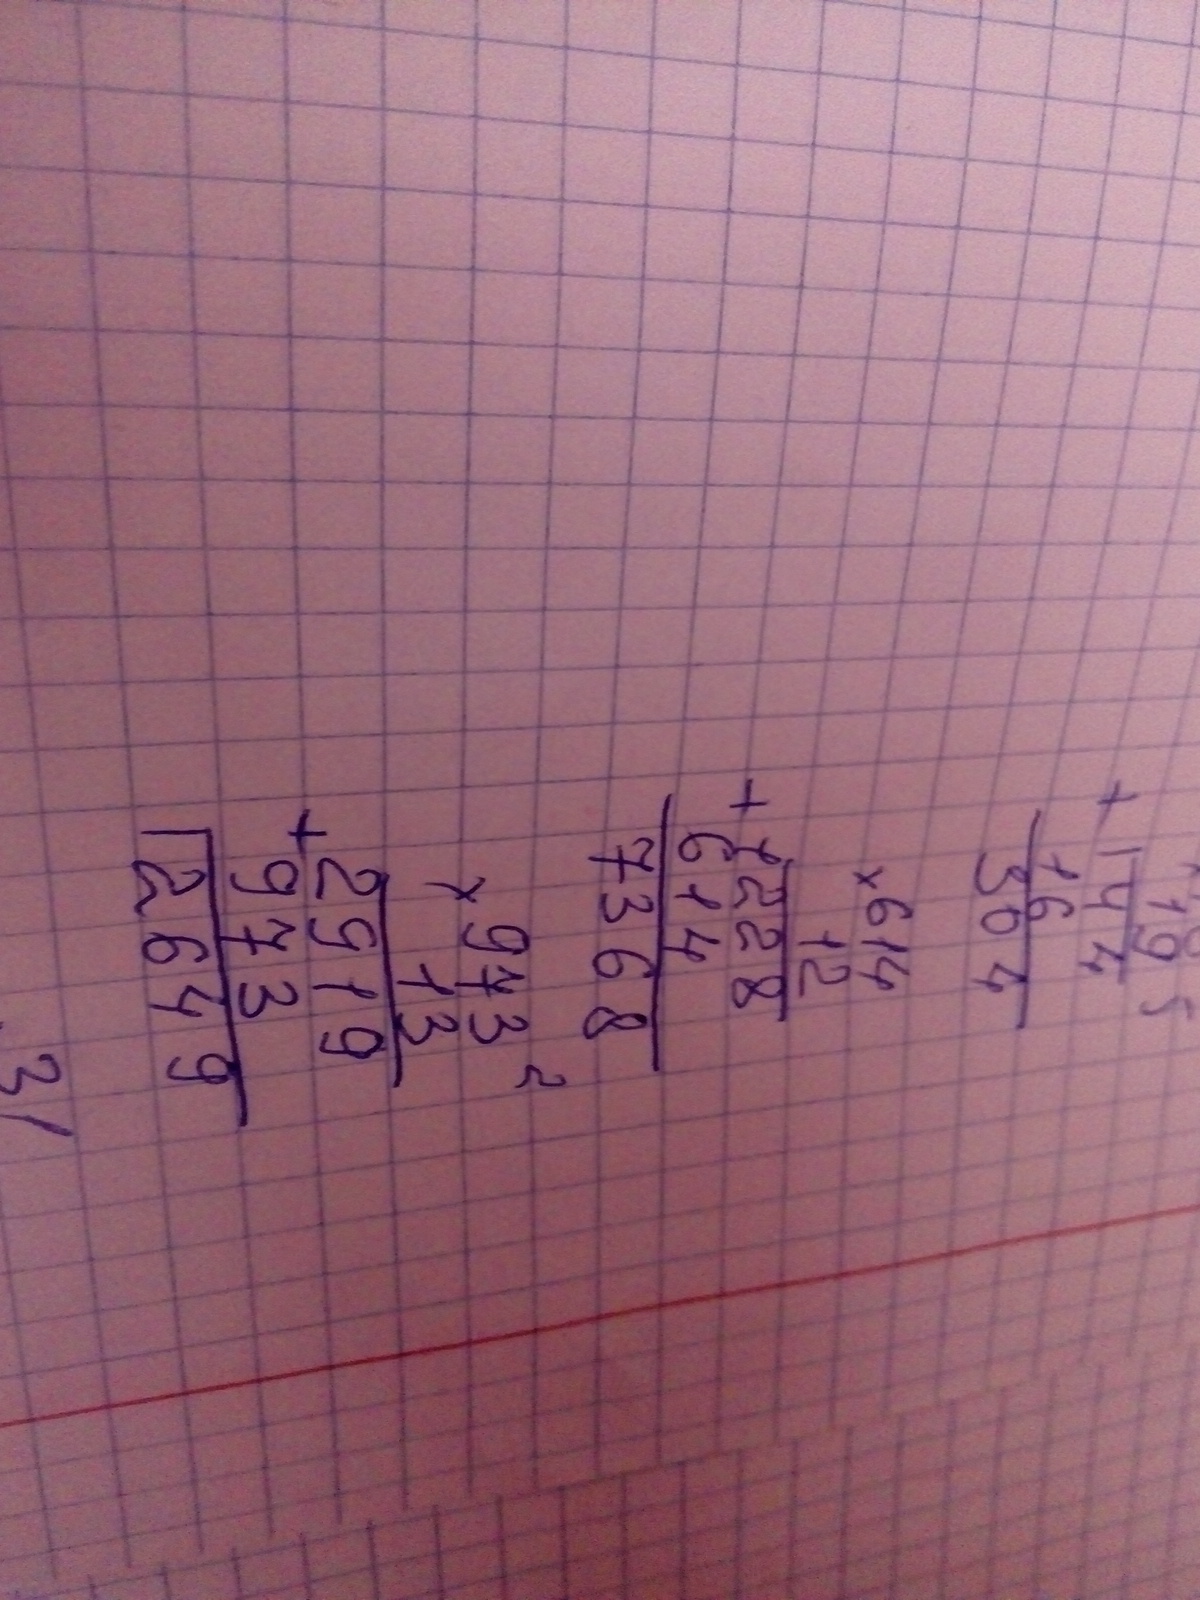 19
+ 144
16
304
× 614
12
+ 1228
614
7368
2
× 973
13
2919
+ 973
12649
3/